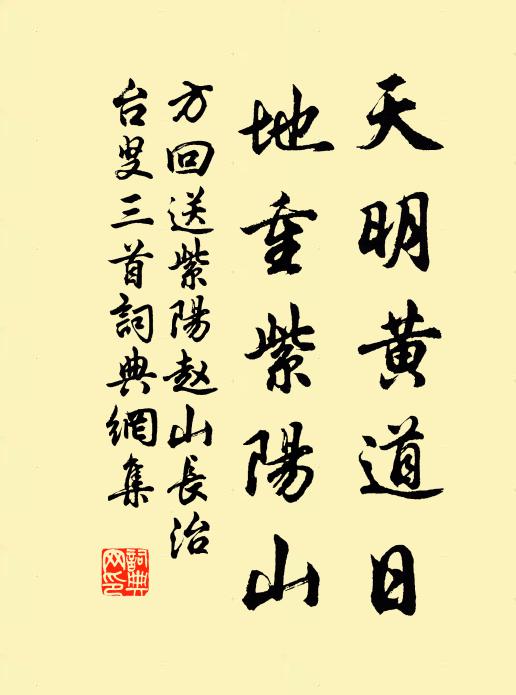 天明黄道日
地重紫陽山
方回送紫陽赵山長治
台叟三首詞典網集
詞典網印